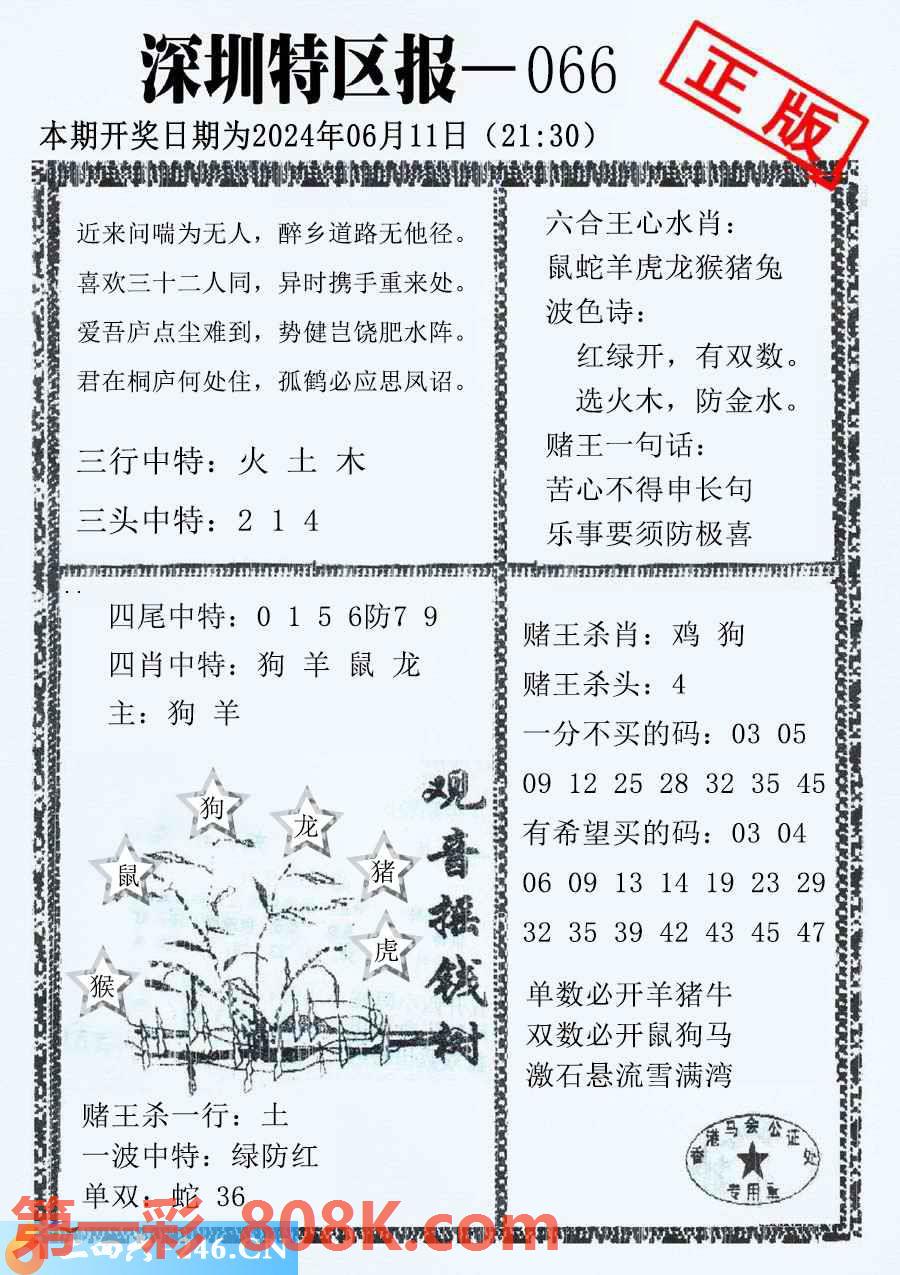 深圳特区报—066
正版
本期开奖日期为2024年06月11日（21:30）
近来问喘为无人，醉乡道路无他径。
喜欢三十二人同，异时携手重来处。
爱吾庐点尘难到，势健岂饶肥水阵。
君在桐庐何处住，孤鹤必应思凤诏。
三行中特：火 土 木
三头中特：2 1 4
六合王心水肖：
鼠蛇羊虎龙猴猪兔
波色诗：
红绿开，有双数。
选火木，防金水。
赌王一句话：
苦心不得申长句
乐事要须防极喜
四尾中特：0 1 5 6防7 9
四肖中特：狗 羊 鼠 龙
主：狗 羊
狗
龙
鼠
猪
虎
猴
观音摇钱树
赌王杀一行：土
一波中特：绿防红
单双：蛇 36
赌王杀肖：鸡 狗
赌王杀头：4
一分不买的码：03 05
09 12 25 28 32 35 45
有希望买的码：03 04
06 09 13 14 19 23 29
32 35 39 42 43 45 47
单数必开羊猪牛
双数必开鼠狗马
激石悬流雪满湾
香港马会公证处
专用章
第一彩.808K.com
246.CN